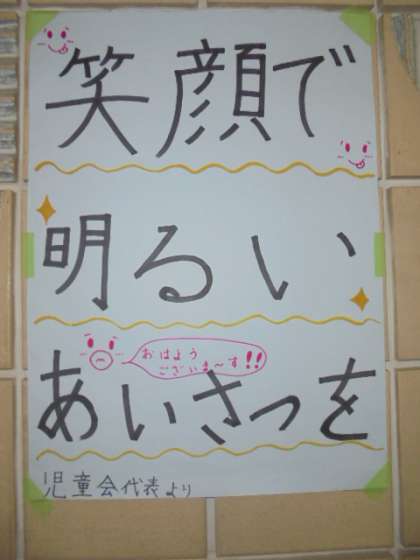 笑顔で
明るい
おはよう
ございま～す!!
あいさつを
児童会代表より